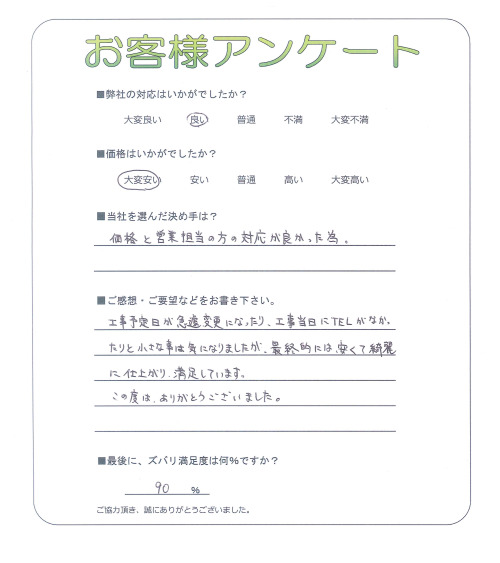 お客様アンケート
■弊社の対応はいかがでしたか？
大変良い 良い 普通 不満 大変不満
■価格はいかがでしたか？
大変安い 安い 普通 高い 大変高い
■当社を選んだ決め手は？
価格と営業担当の方の対応が良かった為。
■ご感想・ご要望などをお書き下さい。
工事予定日が急遽変更になったり、工事当日にTELがなか、
たりと小さな事は気になりましたが、最終的には、安くて綺麗
に仕上がり、満足しています。
この度は、ありがとうございました。
■最後に、ズバリ満足度は何%ですか？
90 %
ご協力頂き、誠にありがとうございました。